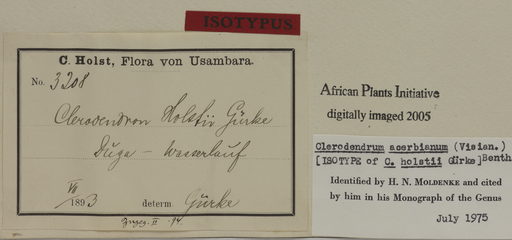 ISOTYPUS
C. Holst, Flora von Usambara.
No. 3208
Clerodendron Holstii Gürke
Duga – Wasserlauf
VII
1893 determ. Gürke
II 94.
African Plants Initiative
digitally imaged 2005
Clerodendrum acerbianum (Visian.)
[ISOTYPE of C. holstii Gürke] Benth
Identified by H. N. MOLDENKE and cited
by him in his Monograph of the Genus
July 1975